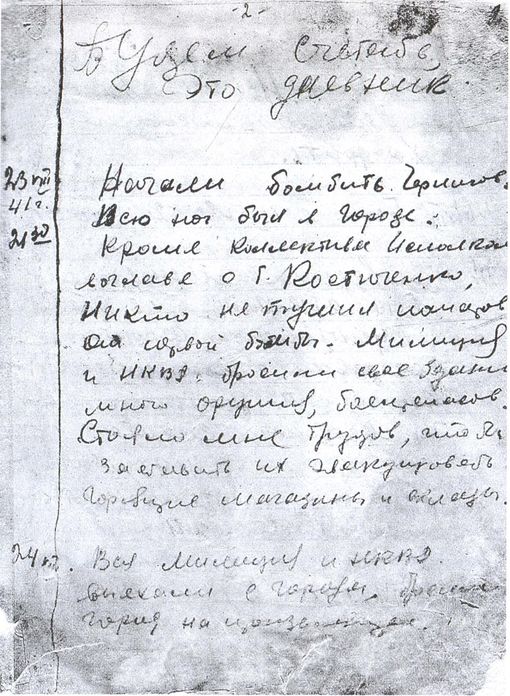 -2-
Будем считать,
Это дневник
23 VIII
41 г.
21 30
Начали бомбить Чернигов.
Всю ноч был в городе.
Кроме коллектива Исполкома
во главе с т. Костюченко,
никто не тушил пожаров
от первой бомбы. Милиция
и НКВД. бросили свое здание
много оружия, боеприпасов.
Стояло мне трудов, чтобы
заставить их эвакуировать
горевшие магазины и склады.
24 VIII. Вся милиция и НКВД.
выехали с города, бросив
город на произвол